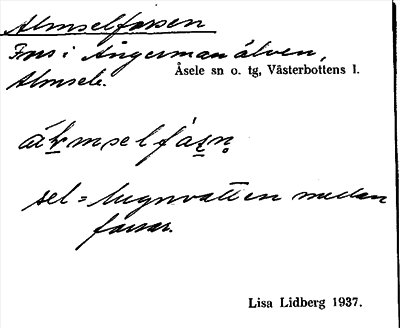 Almselforsen
Fors i Ångermanälven,
Almsele.
Åsele sn o. tg, Västerbottens l.
sel = lugnvatten mellan
forsar.
Lisa Lidberg 1937.